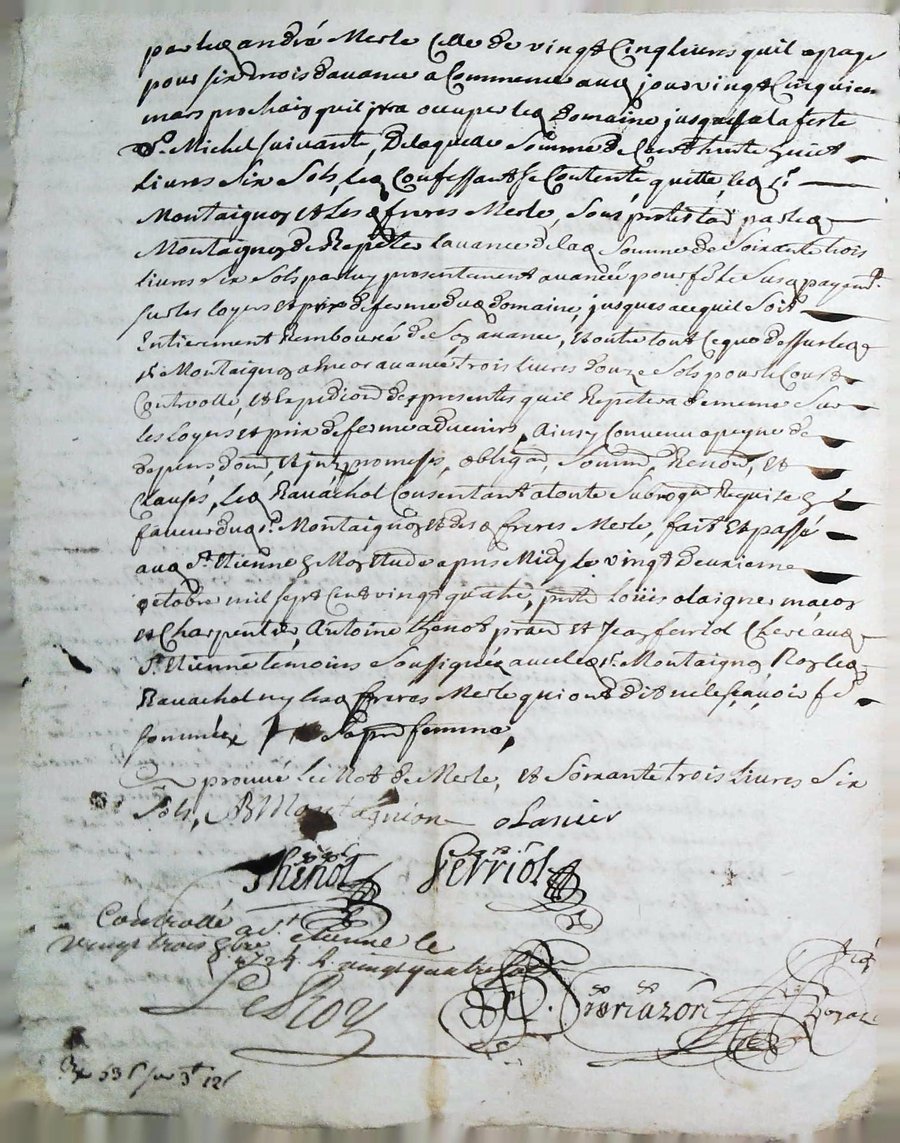 par led andré Merle Celle de vingt Cinq livres quil a payé
pour six mois davance a Commencer aud jour vingt Cinquiem
mars prochain quil ira occuper led Domaine jusques a la feste
St. Michel suivante, De laquelle Somme de Cent trente huit
livres Six Sols, led Confessant Se Contente, quitte, led Sr.
Montaignon et Les d freres Merle, Sous protestaon par led
Montaignon de Repeter lavance de lad Somme de Soixante trois
livres Six Sols par luy presentement avancée pour
sur les loyers et prix de ferme dud domaine, jusques a ce quil Soit
Entierement Remboursé de Son avance, Et outre tout Ce que dessus led
Sr. Montaignon a Encor avancé trois livres douze Sols pour le
Controlle, et Expedion des presentes quil Repetera de meme Sur
les loyers et prix de ferme a devenir, Ainsy Convenu a peyne de
depens, dom, et promesses, obligaon, Soumon, Renon, et
Clauses, led Ravachol Consentant a toute Subrogaon Requise En
faveur dud Sr. Montaignon et desd freres Merle, fait Et passé
aud St. Etienne En Mon Etude apres Midy le vingt deuxieme
octobre mil sept Cent vingt quatre, pnts Loüis olaignier maçon
et Charpentier, Antoine thenot praen et Jean ferriol Clerc aud
St. Etienne temoins Soussignés avec led Sr. Montaignon Non led
Ravachol ny lesd freres Merle qui ont dit ne le sçavoir
Sommés Sa pnt femme,
aprouvé le mot de Merle, et Soixante trois livres Six
Sols, Montagnion olanier
Thenot ferriol
Controllé a St. Etienne le
vingt trois 8bre 1724 R vingt quatre sols
LeRoy